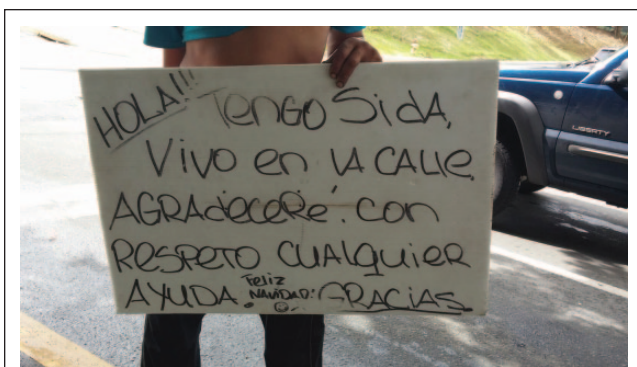 HOLA!!! TENGO SidA,
VIVO en LA CALLE,
AGRAdeceRé. CON
RESPETO CUALQUIER
AYUDA. Feliz NAVIDAD! GRACIAS
LIBERTY